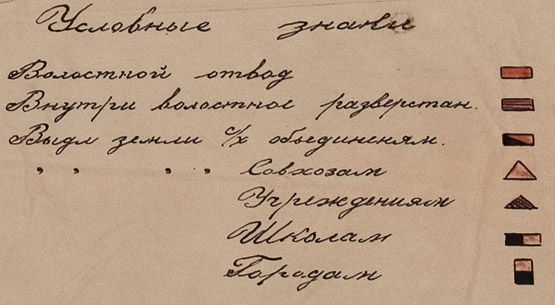 Условные знаки
Волостной отвод
Внутри волостное разверстан.
Выдл земли с/х объединениям.
" " " " Совхозам
Учреждениям
Школам
Городам